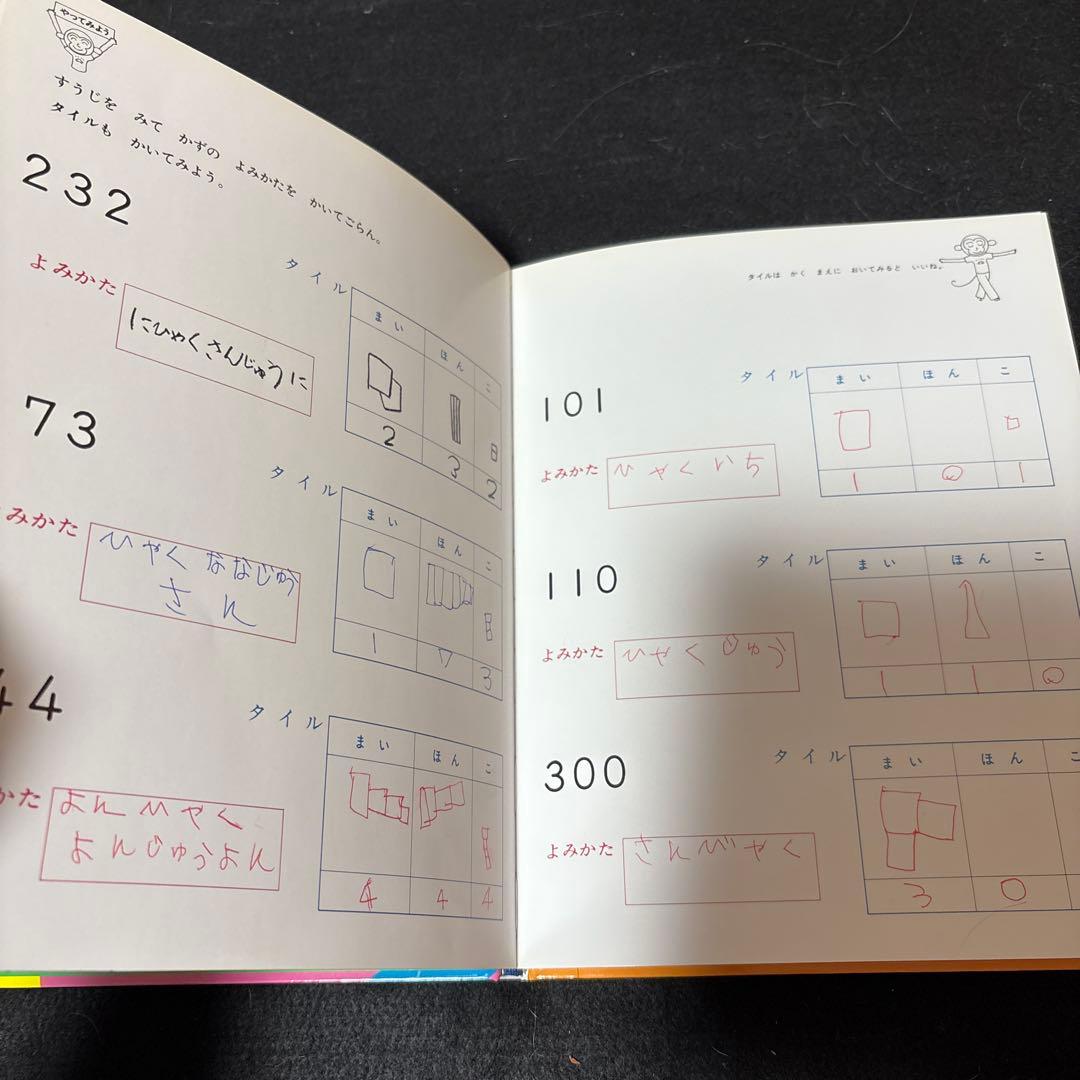 やってみよう
すうじを みて かずの よみかたを かいてごらん。
タイルも かいてみよう。
232
よみかた
にひゃくさんじゅうに
タイル
まい ほん こ
2 3 2
73
みかた
ひゃく ななじゅう
さん
タイル
まい ほん こ
1 7 3
44
かた
よんひゃく
よんじゅうよん
タイル
まい ほん こ
4 4 4
タイルは かく まえに おいてみると いいね。
101
よみかた
ひゃくいち
タイル
まい ほん こ
1 0 1
110
よみかた
ひゃくじゅう
タイル
まい ほん
1 1 0
300
よみかた
さんびゃく
タイル
まい ほん こ
3 0